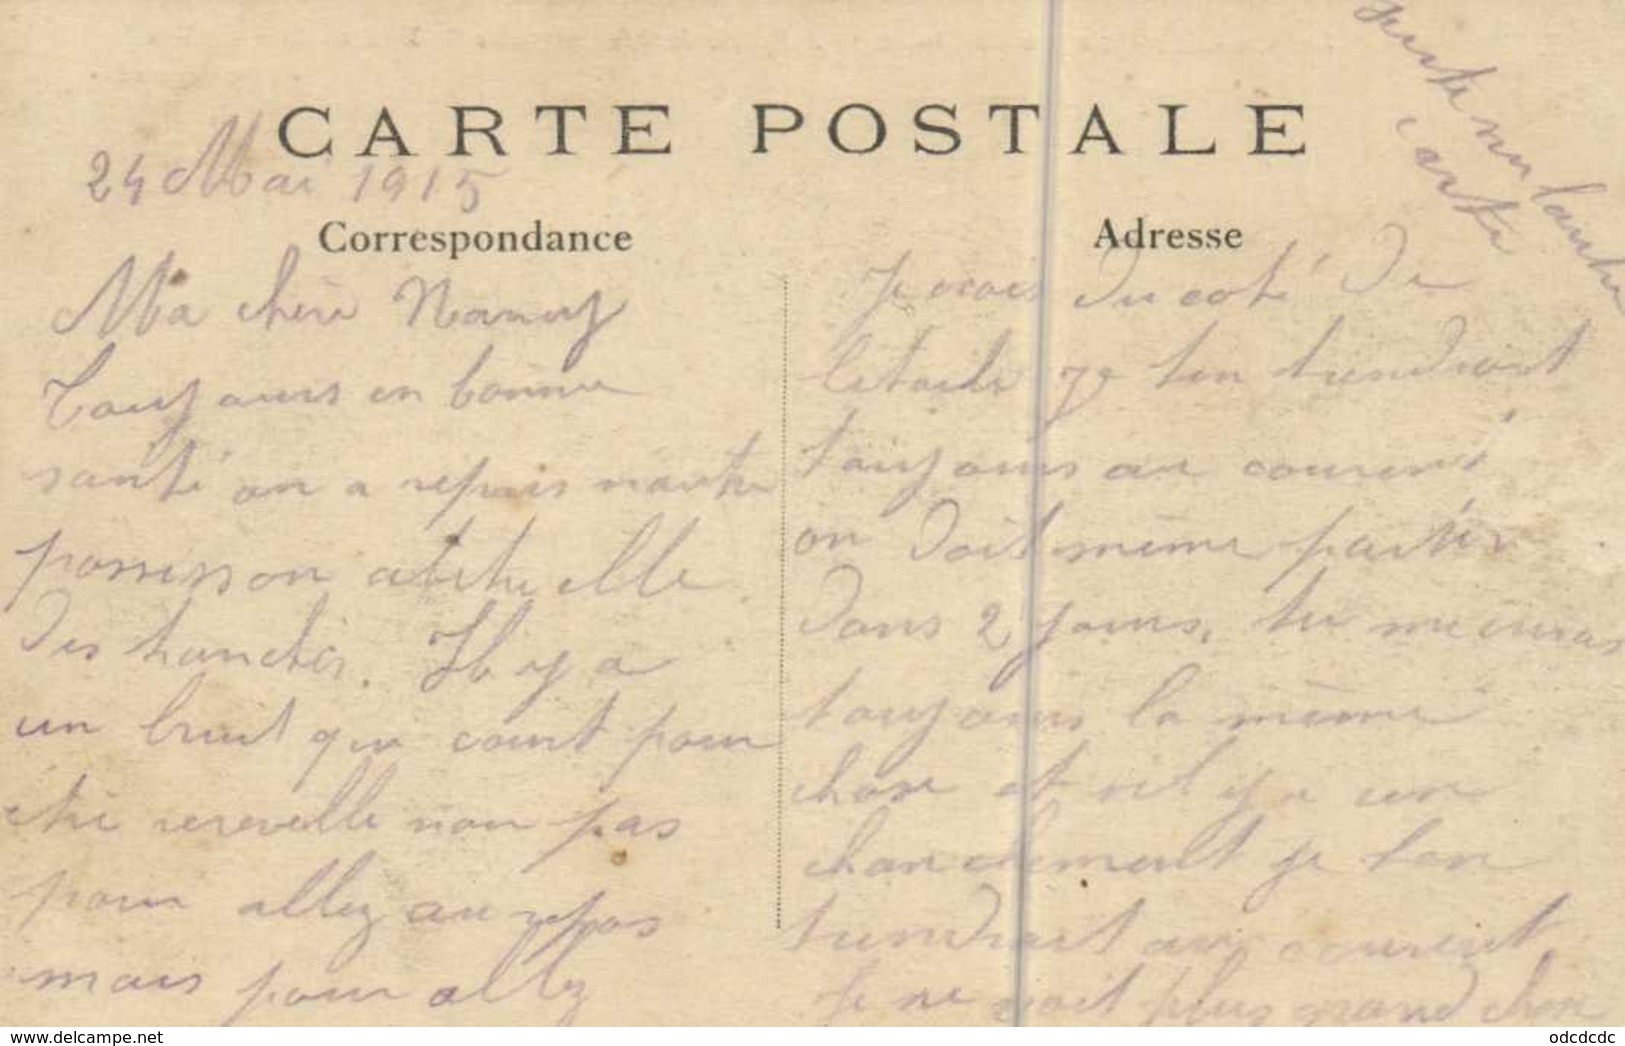 CARTE POSTALE
24 Mai 1915
Correspondance
Ma chère Nancy
Toujours en bonne
santé on a repris
possession
des tranchés. Il y a
un bruit qui court pour
etre rerevelle non pas
pour allez au repos
mais pour allez
Adresse
Je crois du coté de
je ten tiendrait
toujours au courent
on doit même partir
dans 2 jours, tu
toujours la même
chose et sil y a un
je ten
tiendrait au courent,
Je ne voit plus grand chose
suite sur lautre
carte
delcampe.net
odcdcdc